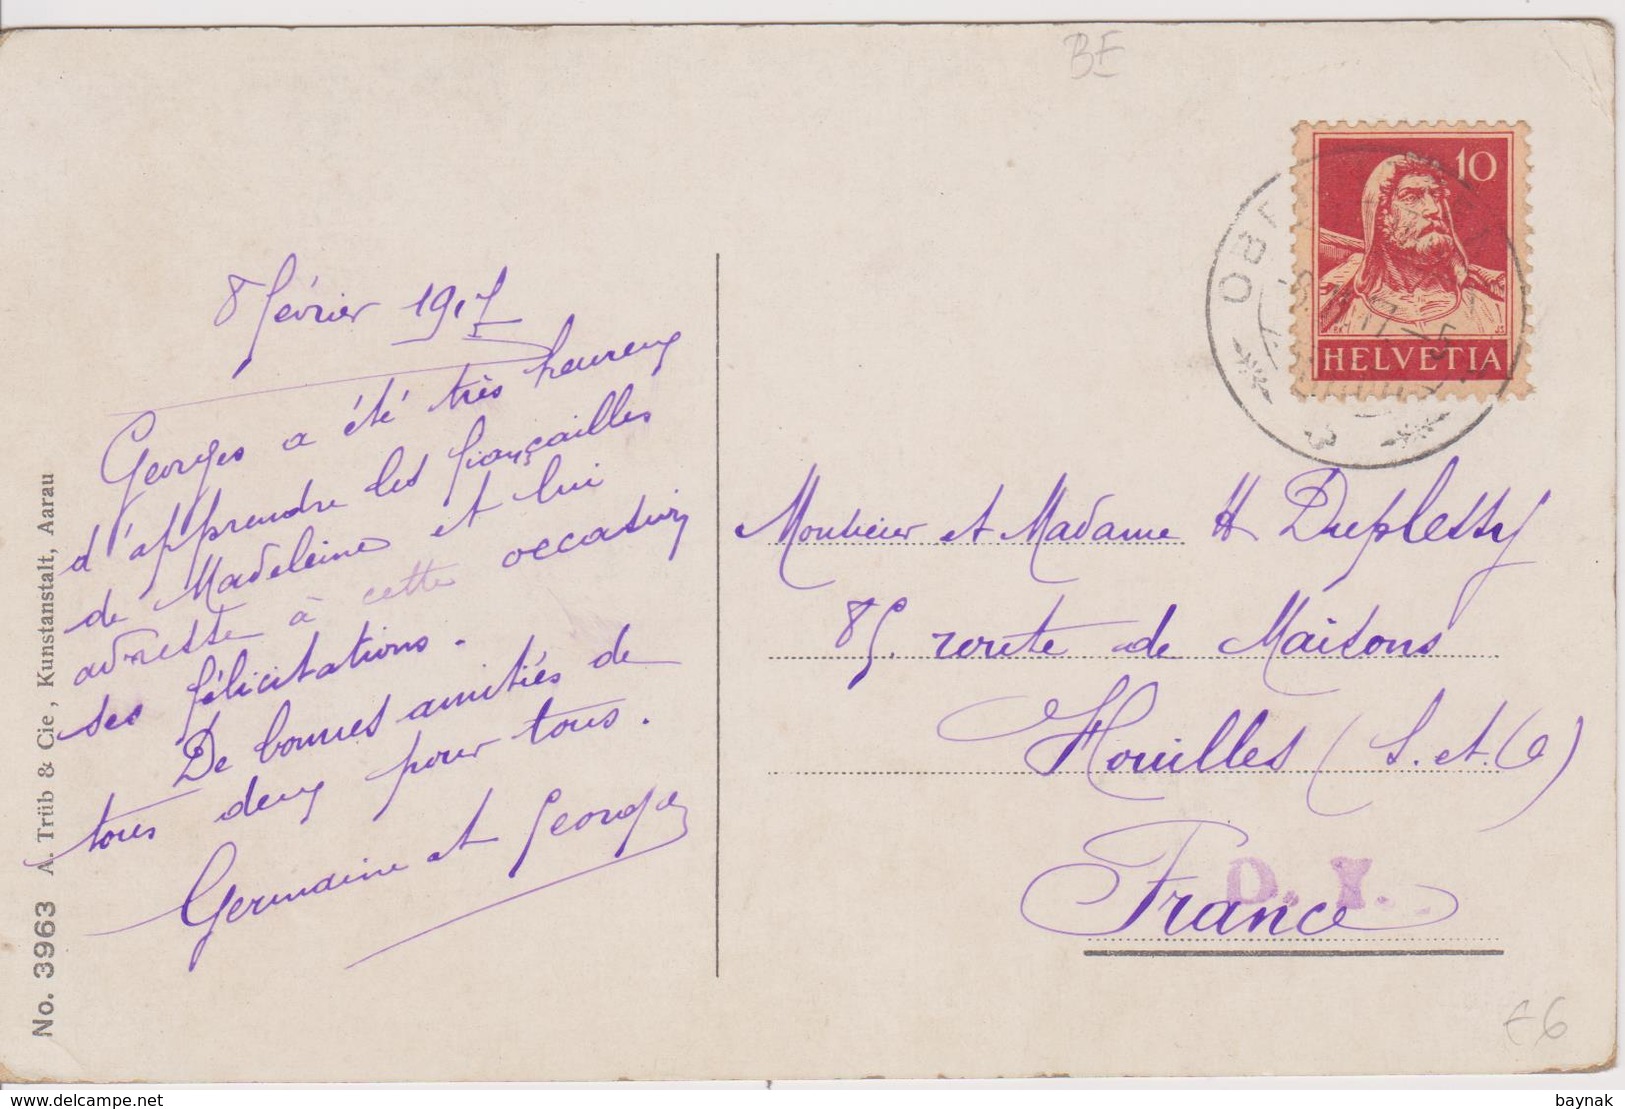 BE
10
HELVETIA
8 février 1917
Georges a été très heureux
d'apprendre les fiançailles
de Madeleine et lui
adresse à cette occasion
ses félicitations.
De bonnes amitiés de
tous deux pour tous.
Germaine et Georges
Monsieur et Madame H Duplessy
85. route de Maisons
Houilles (S. et O)
France
D. Y.
No. 3963 A. Trüb & Cie, Kunstanstalt, Aarau
€6
delcampe.net
baynak